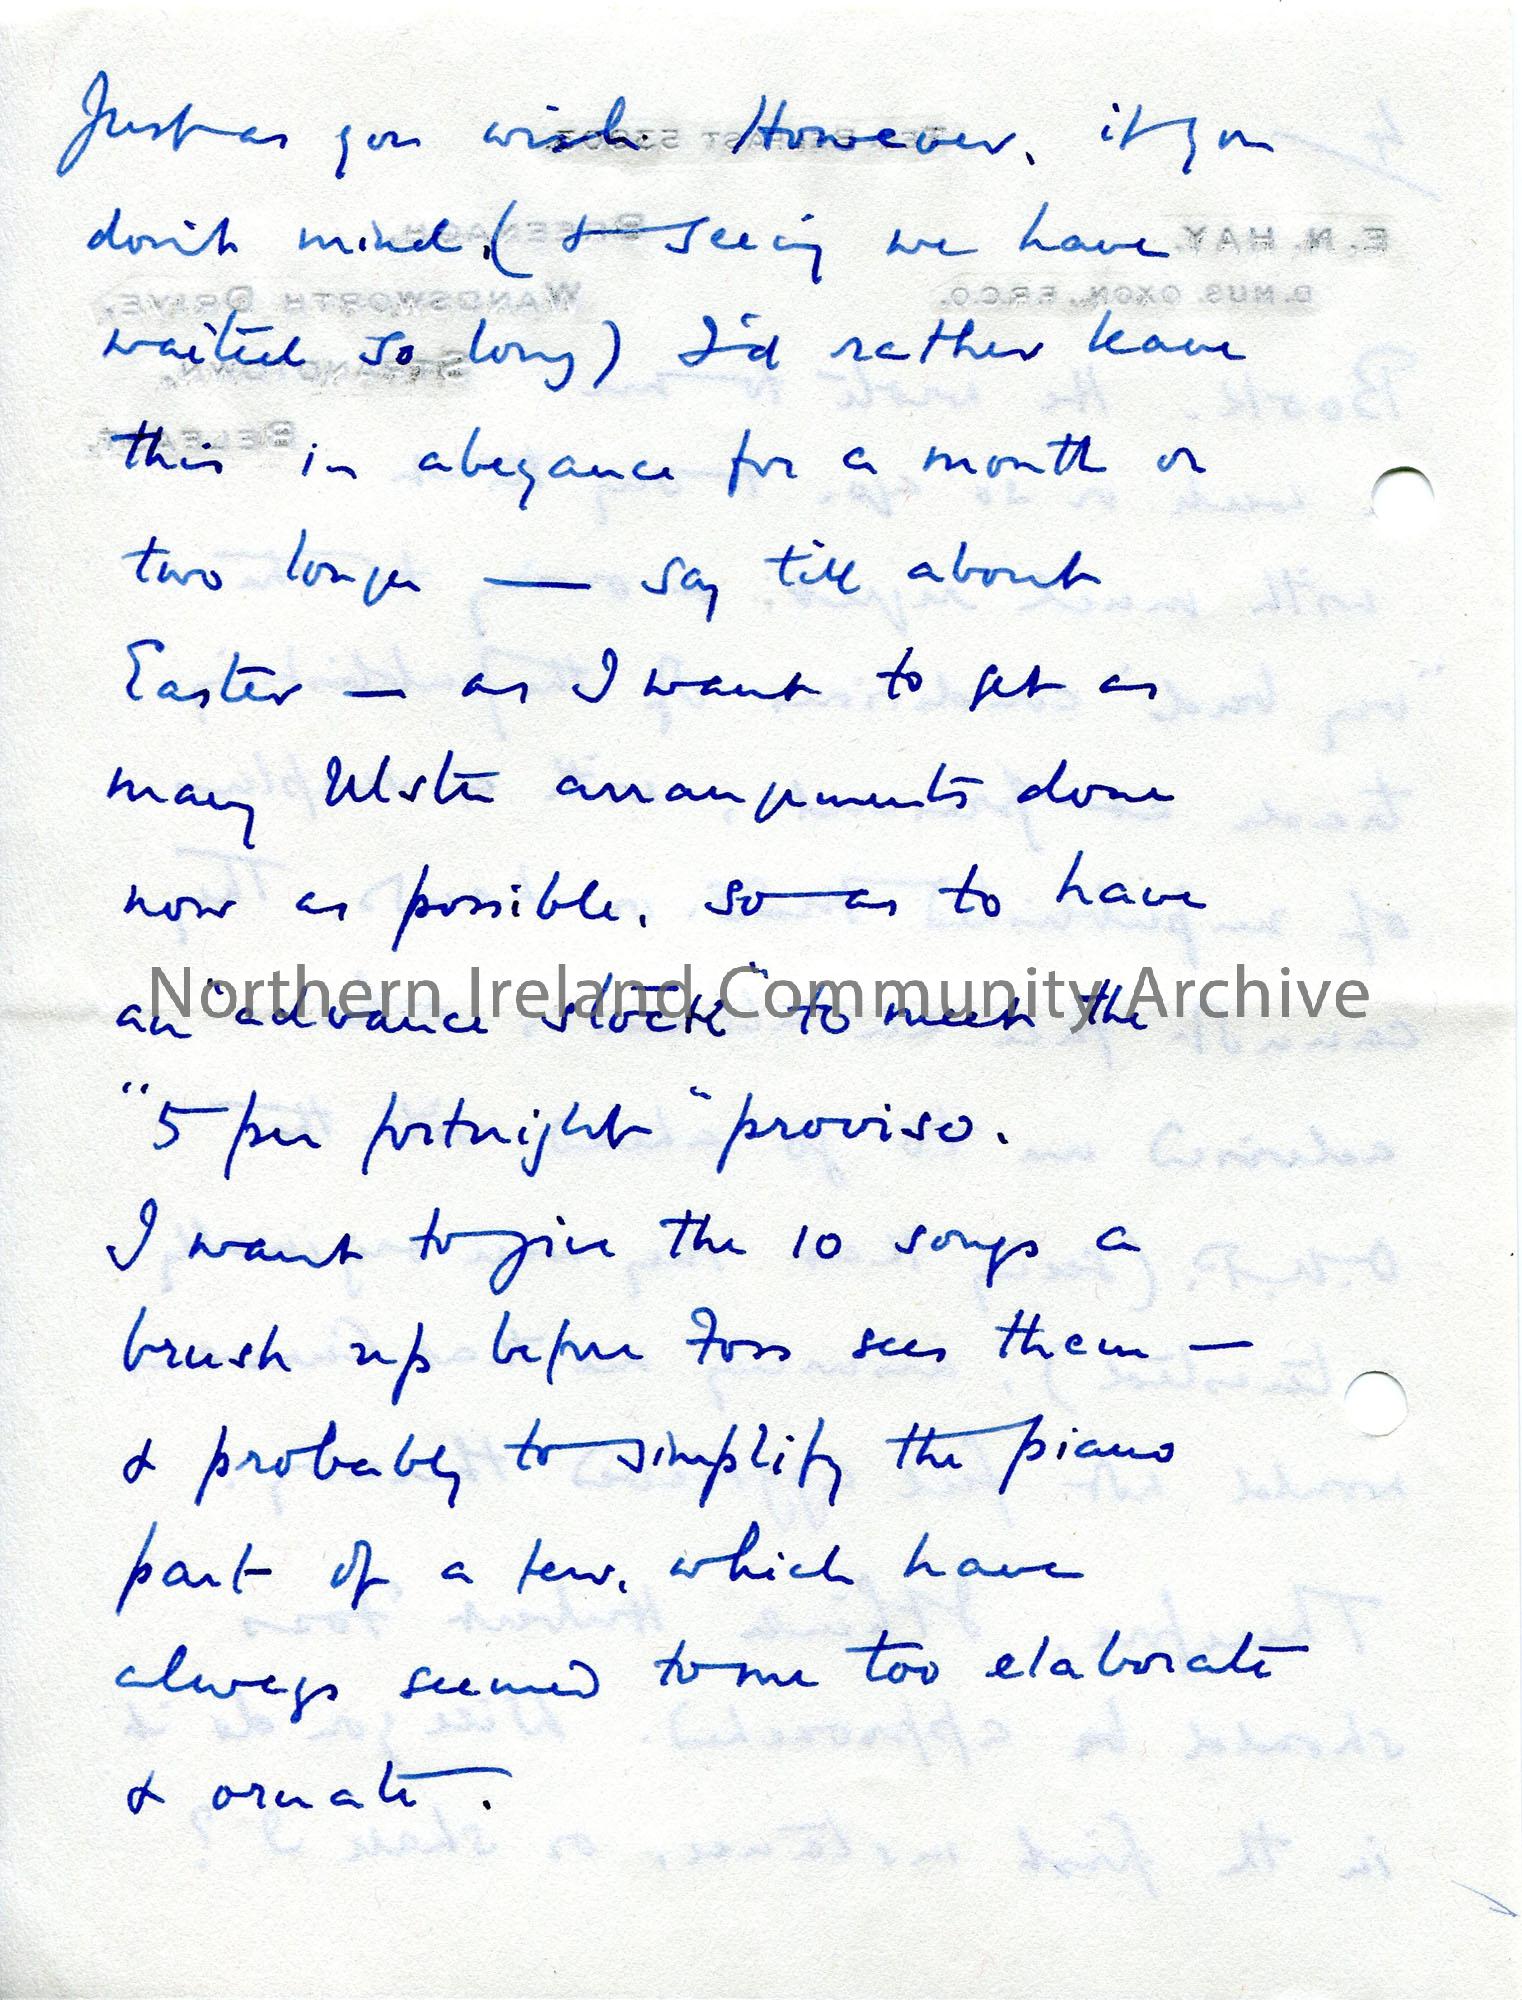 Just as you wish. However, if you
don't mind, (& seeing we have
waited so long) I'd rather leave
this in abeyance for a month or
two longer — say till about
Easter — as I want to get as
many Ulster arrangements done
now as possible, so as to have
an "advance stock" to meet the
Northern Ireland Community Archive
"5 per fortnight" proviso.
I want to give the 10 songs a
brush up before Foss sees them —
& probably to simplify the piano
part of a few, which have
always seemed to me too elaborate
& ornate.
E. N. HAY.
D. MUS. OXON., F.R.C.O.
WANDSWORTH DRIVE,
STRANDTOWN,
BELFAST.